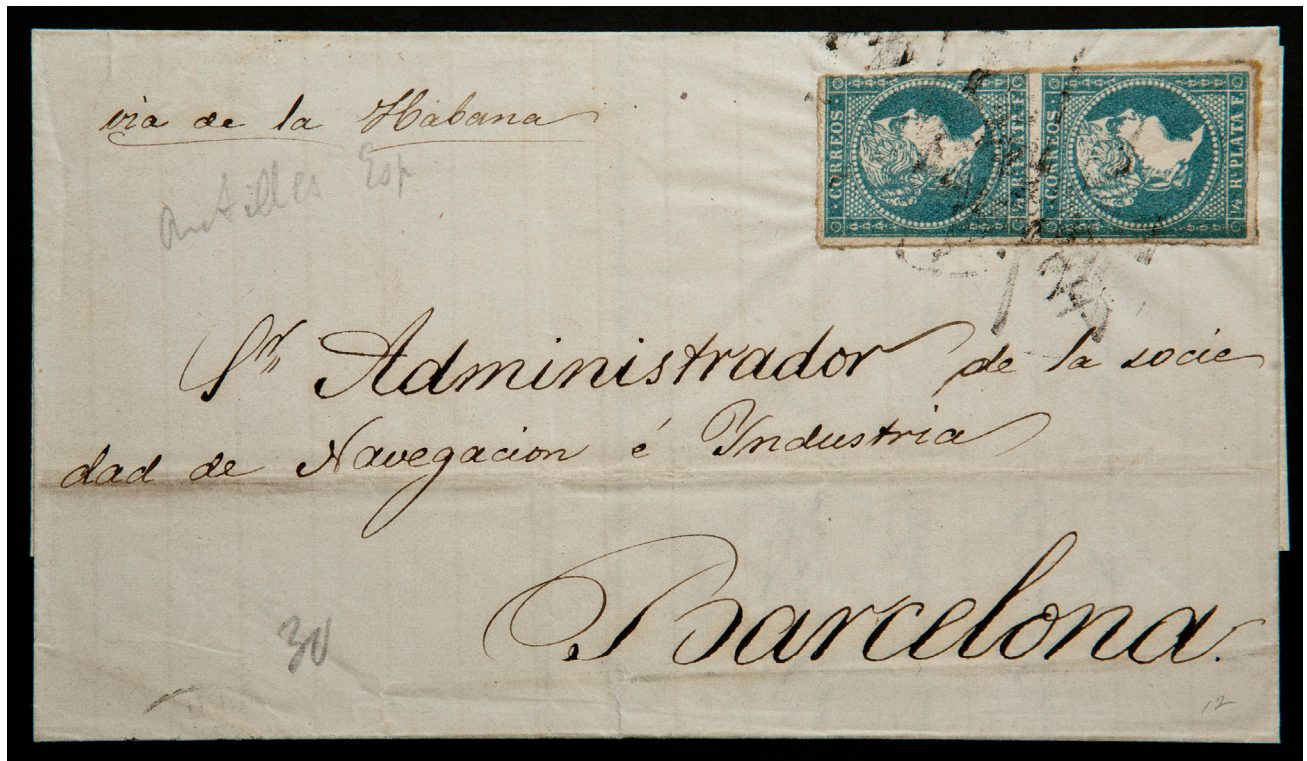 via de la Habana
Antilles Esp.
CORREOS
½ R. PLATA F.
CORREOS
½ R. PLATA F.
Sr. Administrador de la socie
dad de Navegacion é Yndustria
Barcelona.
30
12